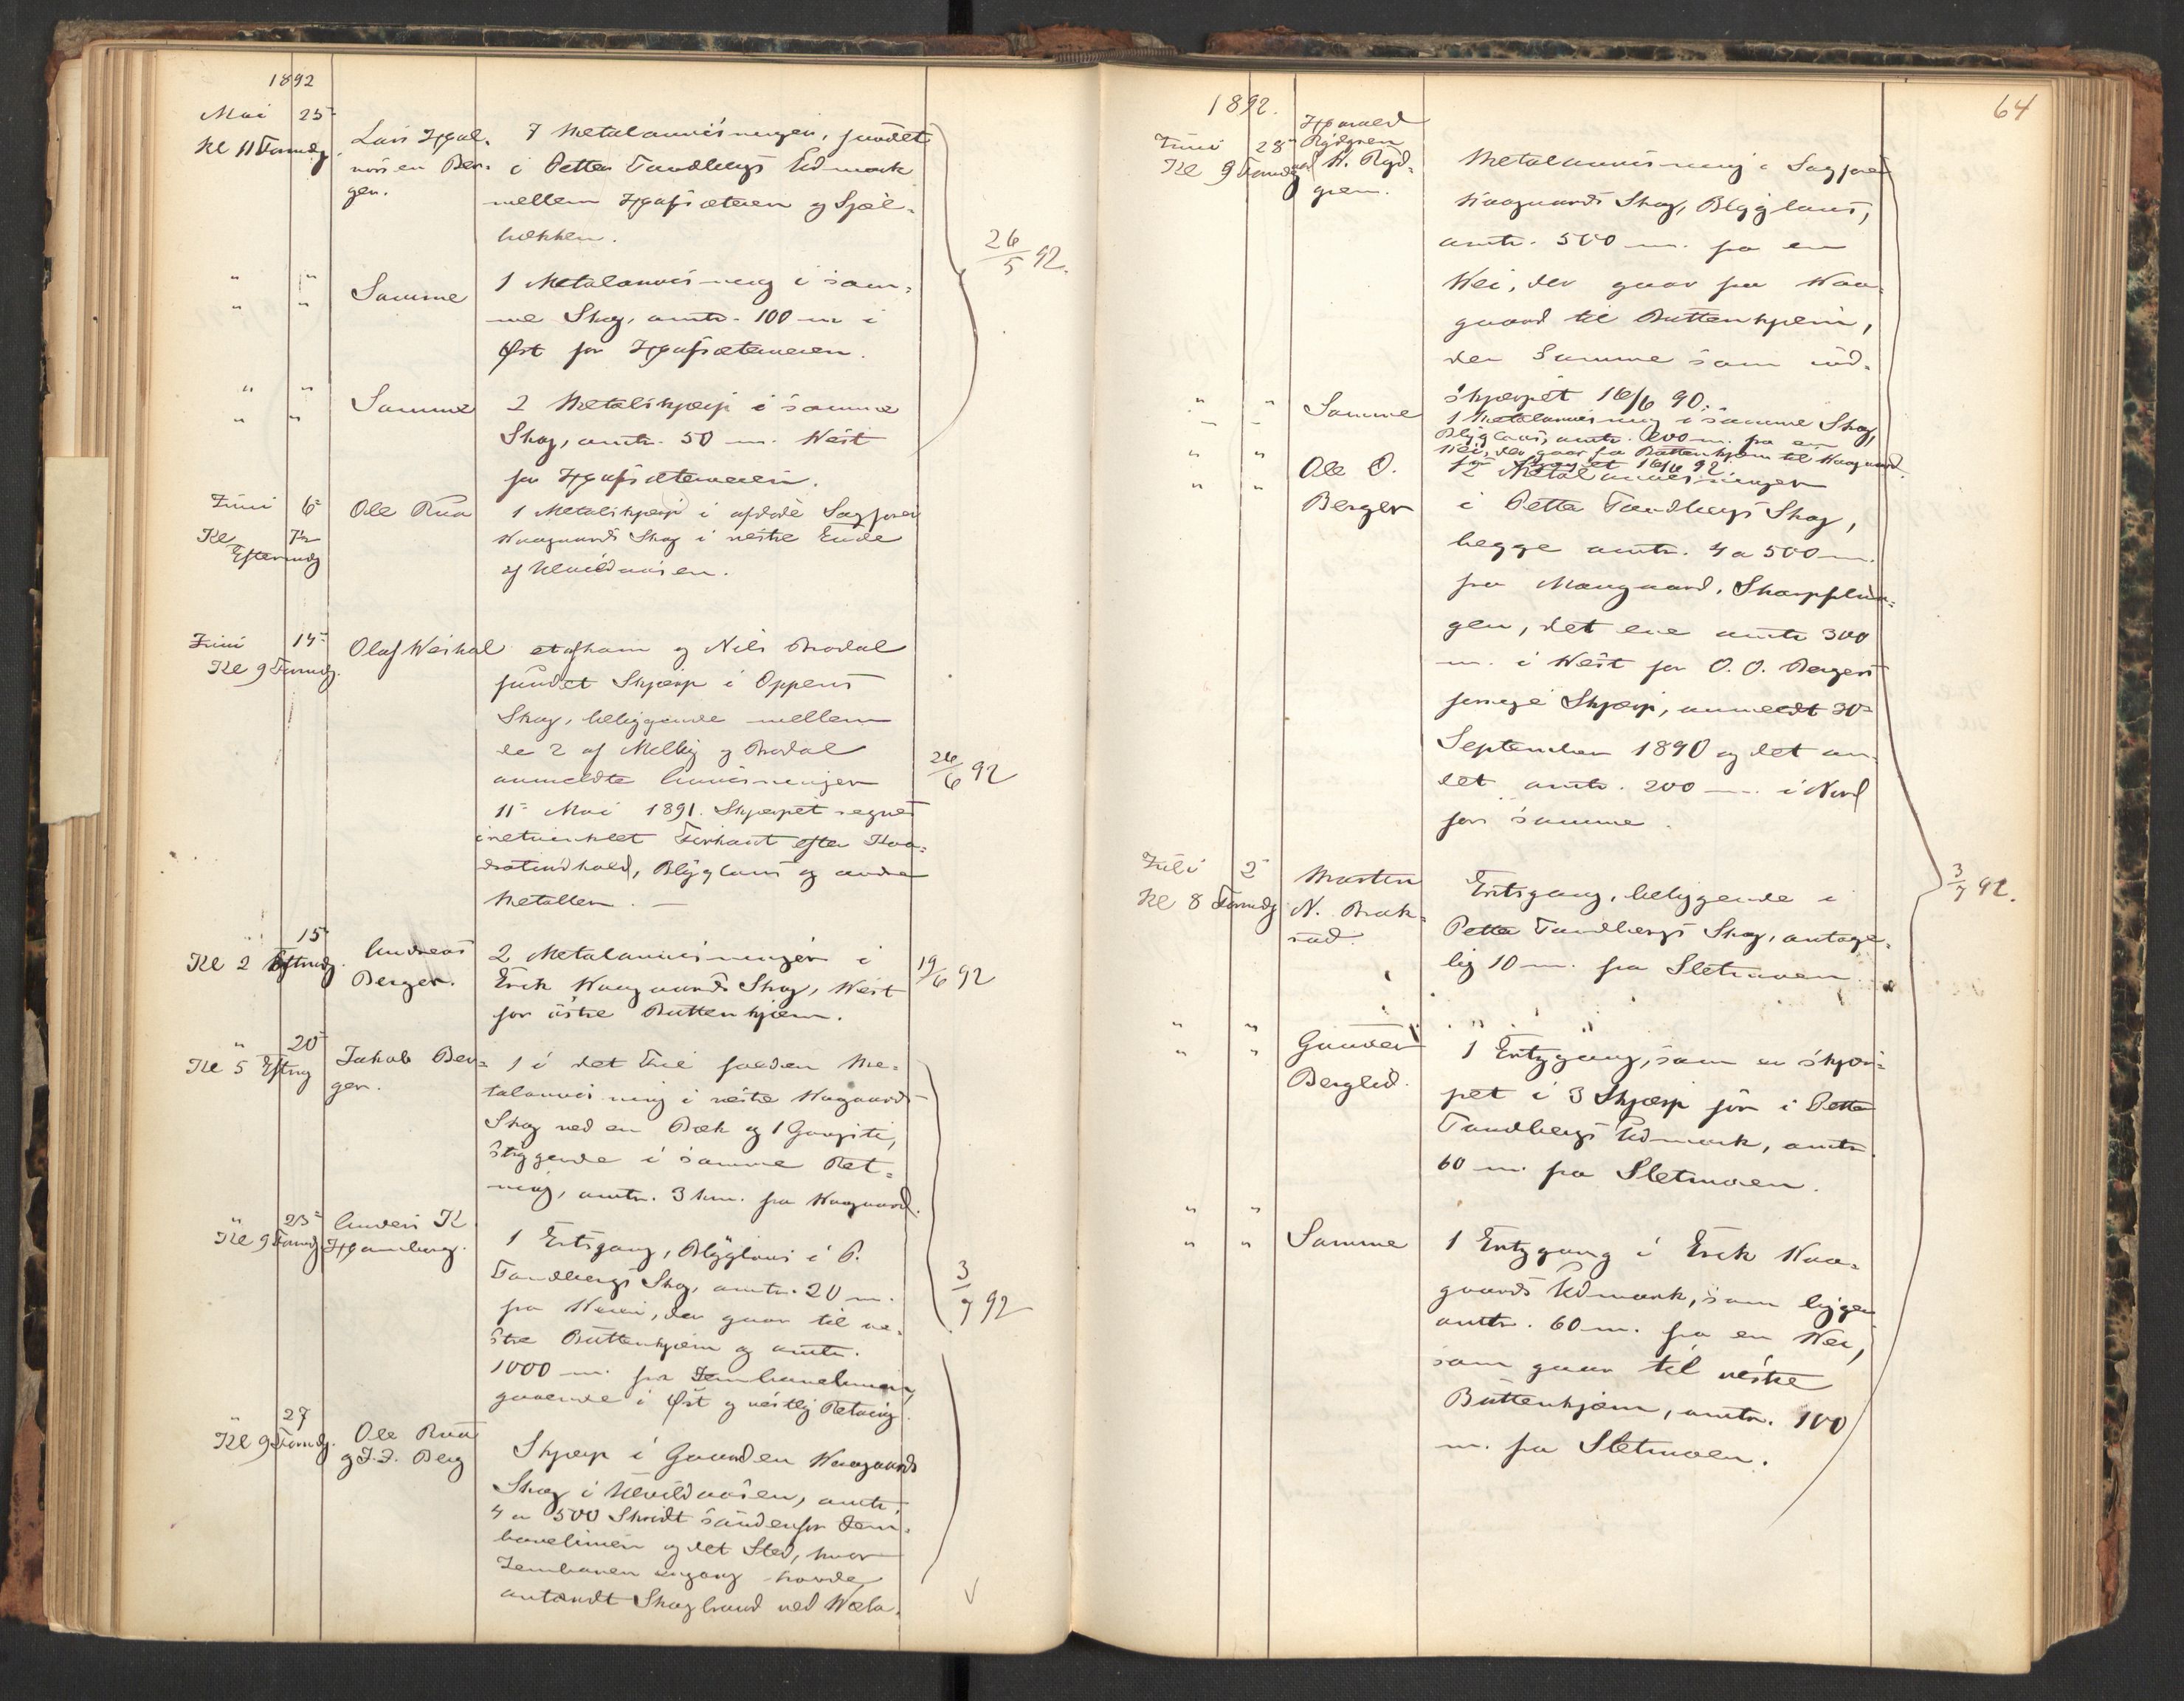 1892
Mai 25de
Kl 11 Formdg.
Lars Hjal-
mörsen Ber-
gen.
7 Metalanvisninger, fundet
i Petter Tandbergs Udmark
mellem Hjafsæteren og Sjæl-
bækken.
26/5 92.
" "
" "
Samme
1 Metalanvisning i sam-
me Skog, amtr. 100 m i
Øst for Hjafsæterveien.
" "
" "
Samme
2 Metalskjærp i samme
Skog, omtr. 50 m. Vest
for Hjafsæterveien.
Juni 6te
Kl 7½
Eftermdg
Ole Rua
1 Metalskjærp i afdøde Sagfører
Kaagaards Skog i vestre Ende
af Ulvildaasen.
Juni 14de
Kl 9 Formdg.
Olaf Weihal et af ham og Nils Brodal
fundet Skjærp i Oppens
Skog, beliggende mellem
de 2 af Melby og Brodal
anmeldte Anvisninger
11te Mai 1891. Skjærpet regnes
i retvinklet Firkant efter Kva-
dratindhold, Blyglans og andre
Metaller. —
26/6 92
15de
Kl 2 Eftmdg.
Andreas
Berger.
2 Metalanvisninger i
Erik Kaagaards Skog, Vest
for östre Buttenkjærn.
19/6 92
" 20de
Kl 5 Eftmg
Jakob Ber-
ger.
1 i det Frie falden Me-
talanvisning i vestre Kagaards
Skog ved en Bæk og 1 Gangsti,
strygende i samme Ret-
ning, omtr. 3 km. fra Kaagaard.
" 23de
Kl 9 Formdg
Anders K
Hjamberg.
1 Ertsgang, Blyglans i P.
Tandbergs Skog, omtr. 20 m.
fra Veien, der gaar til ve-
stre Buttenkjærn og omtr.
1000 m. fra Jernbanelinien,
gaaende i Øst og vestlig Retning.
3/7 92
" 27
Kl 9 Formdg.
Ole Rua
og J. J. Berg
Skjærp i Gaarden Kaagaards
Skog i Ulvildaasen, omtr.
4 a 500 Skridt søndenfor Jern-
banelinien og det Sted, hvor
Jernbanen engang havde
antændt Skogbrand ved
1892.
64
Juni 28de
Kl 9 Formdg
Harald
Rydgren
ved H. Ryd-
gren.
Metalanvisning i Sagfører
Kaagaards Skog, Blyglans,
omtr. 500 m. fra en
Vei, der gaar fra Kaa-
gaard til Buttenkjærn,
den Samme som ind-
skjærpet 16/6 90.
" "
" "
Samme
1 Metalanvisning i samme Skog,
Blyglans, omtr. 600 m. fra en
Vei, der gaar fra Buttenkjærn til Kaagaard.
16/6 92.
" "
" "
Ole O.
Berger
2 Metalanvisninger
i Petter Tandbergs Skog,
begge omtr. 4 a 500 m.
fra Maagaard, Skarpplin-
gen, det ene omtr 300
m. i Vest for O. O. Bergers
forrige Skjærp, anmeldt 30te
September 1890 og det an-
det omtr. 200 m. i Nord
for samme.
Juli 2de
Kl 8 Formdg
Morten
N. Brak-
rud.
Ertsgang, beliggende i
Petter Tandbergs Skog, antage-
lig 10 m. fra Sletmoen.
3/7 92.
" "
" "
Gunder
Berglid.
1 Ertzgang, som er skjær-
pet i 3 Skjærp før i Petter
Tandbergs Udmark, omtr.
60 m. fra Sletmoen.
" "
" "
Samme
1 Ertzgang i Erik Kaa-
gaards Udmark, som ligger
omtr. 60 m. fra en Vei,
som gaar til vestre
Buttenkjærn, omtr. 100
m. fra Sletmoen.